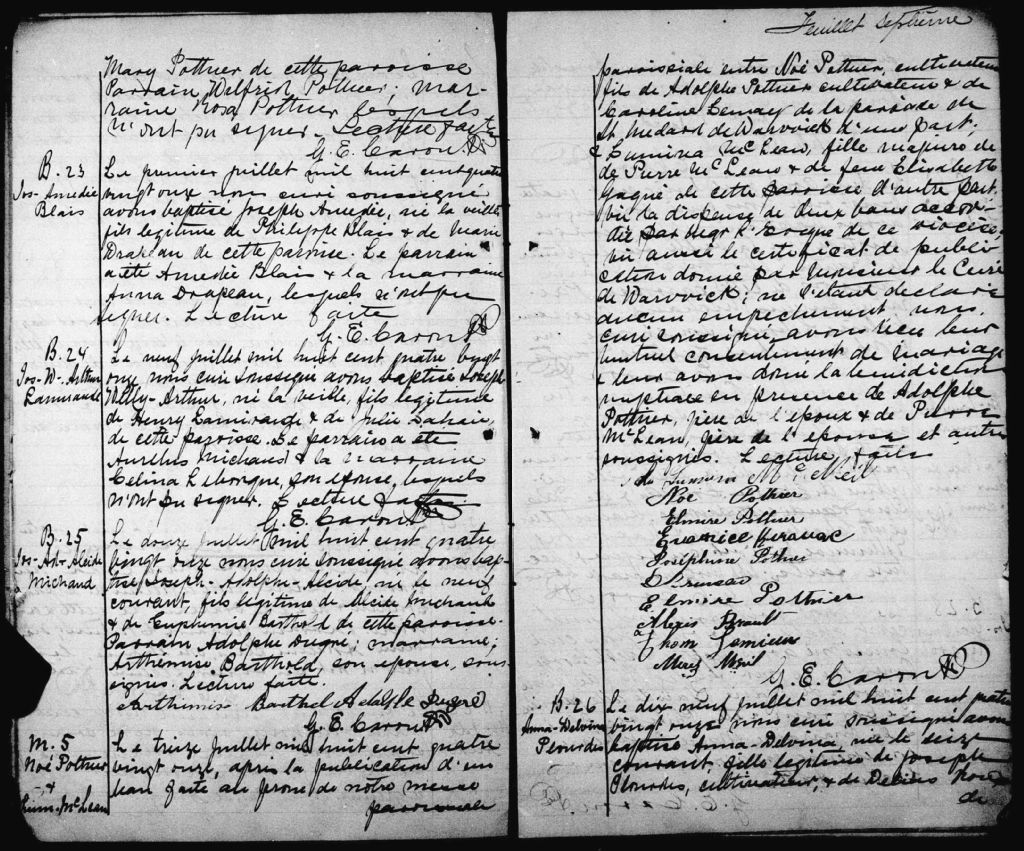 Mary Pothier de cette paroisse
Parrain Wilfrid Pothier; mar-
raine Rosa Pothier lesquels
n'ont pu signer. Lecture faite
G. E. Caron Ptr
B. 23
Jos-Amedie
Blais
Le premier juillet mil huit cent quatre
vingt onze nous curé soussigné
avons baptisé Joseph Amédée, né la veille
fils legitime de Philippe Blais & de Marie
Drapeau de cette paroisse. Le parrain
a été Amedée Blais & la marraine
Anna Drapeau, lesquels n'ont pu
signer. Lecture faite
G. E. Caron Ptr
B. 24
Jos-W-Arthur
Lamirande
Le neuf juillet mil huit cent quatre vingt
onze nous curé soussigné avons baptisé Joseph
Willy-Arthur, né la veille, fils legitime
de Henry Lamirande & de Julie
de cette paroisse. Le parrain a été
Aurelus Michaud & la marraine
Celina Liborque, son épouse, lesquels
n'ont pu signer. Lecture faite
G. E. Caron Ptr
B. 25
Jos-Ad-Alcide
Michaud
Le douze juillet mil huit cent quatre
vingt onze nous curé soussigné avons bap-
tisé Joseph-Adolphe-Alcide, né le neuf
courant, fils légitime de Alcide Michaud
& de Euphemie Barthold de cette paroisse.
Parrain Adolphe Dugré; marraine;
Arthémise Barthold, son epouse, sous-
signés. Lecture faite.
Arthimis Barthel Adolphe Dugré
G. E. Caron Ptr
M. 5
Noé Pothier
&
Lum. McLean
Le treize juillet mil huit cent quatre
vingt onze, après la publication d'un
ban faite au prone de notre messe
paroissiale
Feuillet Septième
paroissiale entre Noé Pothier, cultivateur
fils de Adolphe Pothier cultivateur & de
Caroline Lemay de la paroisse de
St. Medard de Warwick d'une part;
& Lumina McLean, fille majeure de
de Pierre McLean & de feue Elisabeth
Gagné de cette paroisse d'autre part
vu la dispense de deux bans accor-
dée par Mgr l'Evêque de ce diocèse
vu aussi le certificat de publi
cation donné par Monsieur le Curé
de Warwick; ne s'étant declaré
aucun empechement, nous,
curé soussigné, avons reçu leur
mutuel consentement de mariage
& leur avons donné la benediction
nuptiale en presence de Adolphe
Pothier, père de l'epoux & de Pierre
McLean, père de l'epouse et autres
soussignés. Lecture faite
Lumina McNeil
Noé Pothier
Elmire Pothier
Joséphine Pothier
Elmire Pothier
Alexis Brault
Thom Lemieux
G. E. Caron Ptr
B. 26
Anna-Delvina
Plourdes
Le dix neuf juillet mil huit cent quatre
vingt onze nous curé soussigné avons
baptisé Anna-Delvina, née le seize
courant, fille legitime de Joseph
Plourdes, cultivateur, & de Delias Roux
de